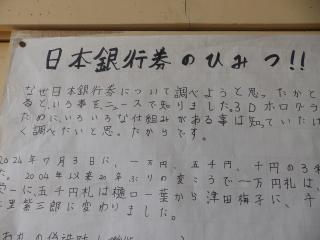 日本銀行券のひみつ!!
なぜ日本銀行券について調べようと思ったかと
ると、いう事をニュースで知りました。3Dホログラ
ために、いろいろな仕組みがある事は知っていたけ
く調べたいと思ったからです。
2024年7月3日に、一万円、五千円、千円の3
た。2004年以来20年ぶりの変こうで一万円札は、
栄一に、五千円札は樋口一葉から津田梅子に、千
里柴三郎に変わりました。